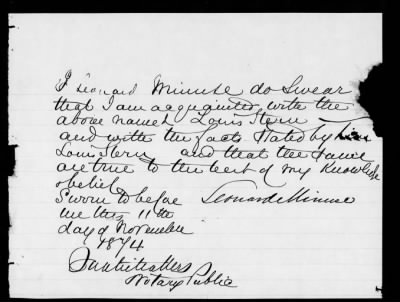 I Leonard Minuse do Swear
that I am acquainted with the
above named Louis Stern
and with the facts stated by him
Louis Stern and that the same
are true to the best of my Knowledge
& belief
Sworn to before Leonard Minuse
me this 11th
day of November
1874
Notary Public